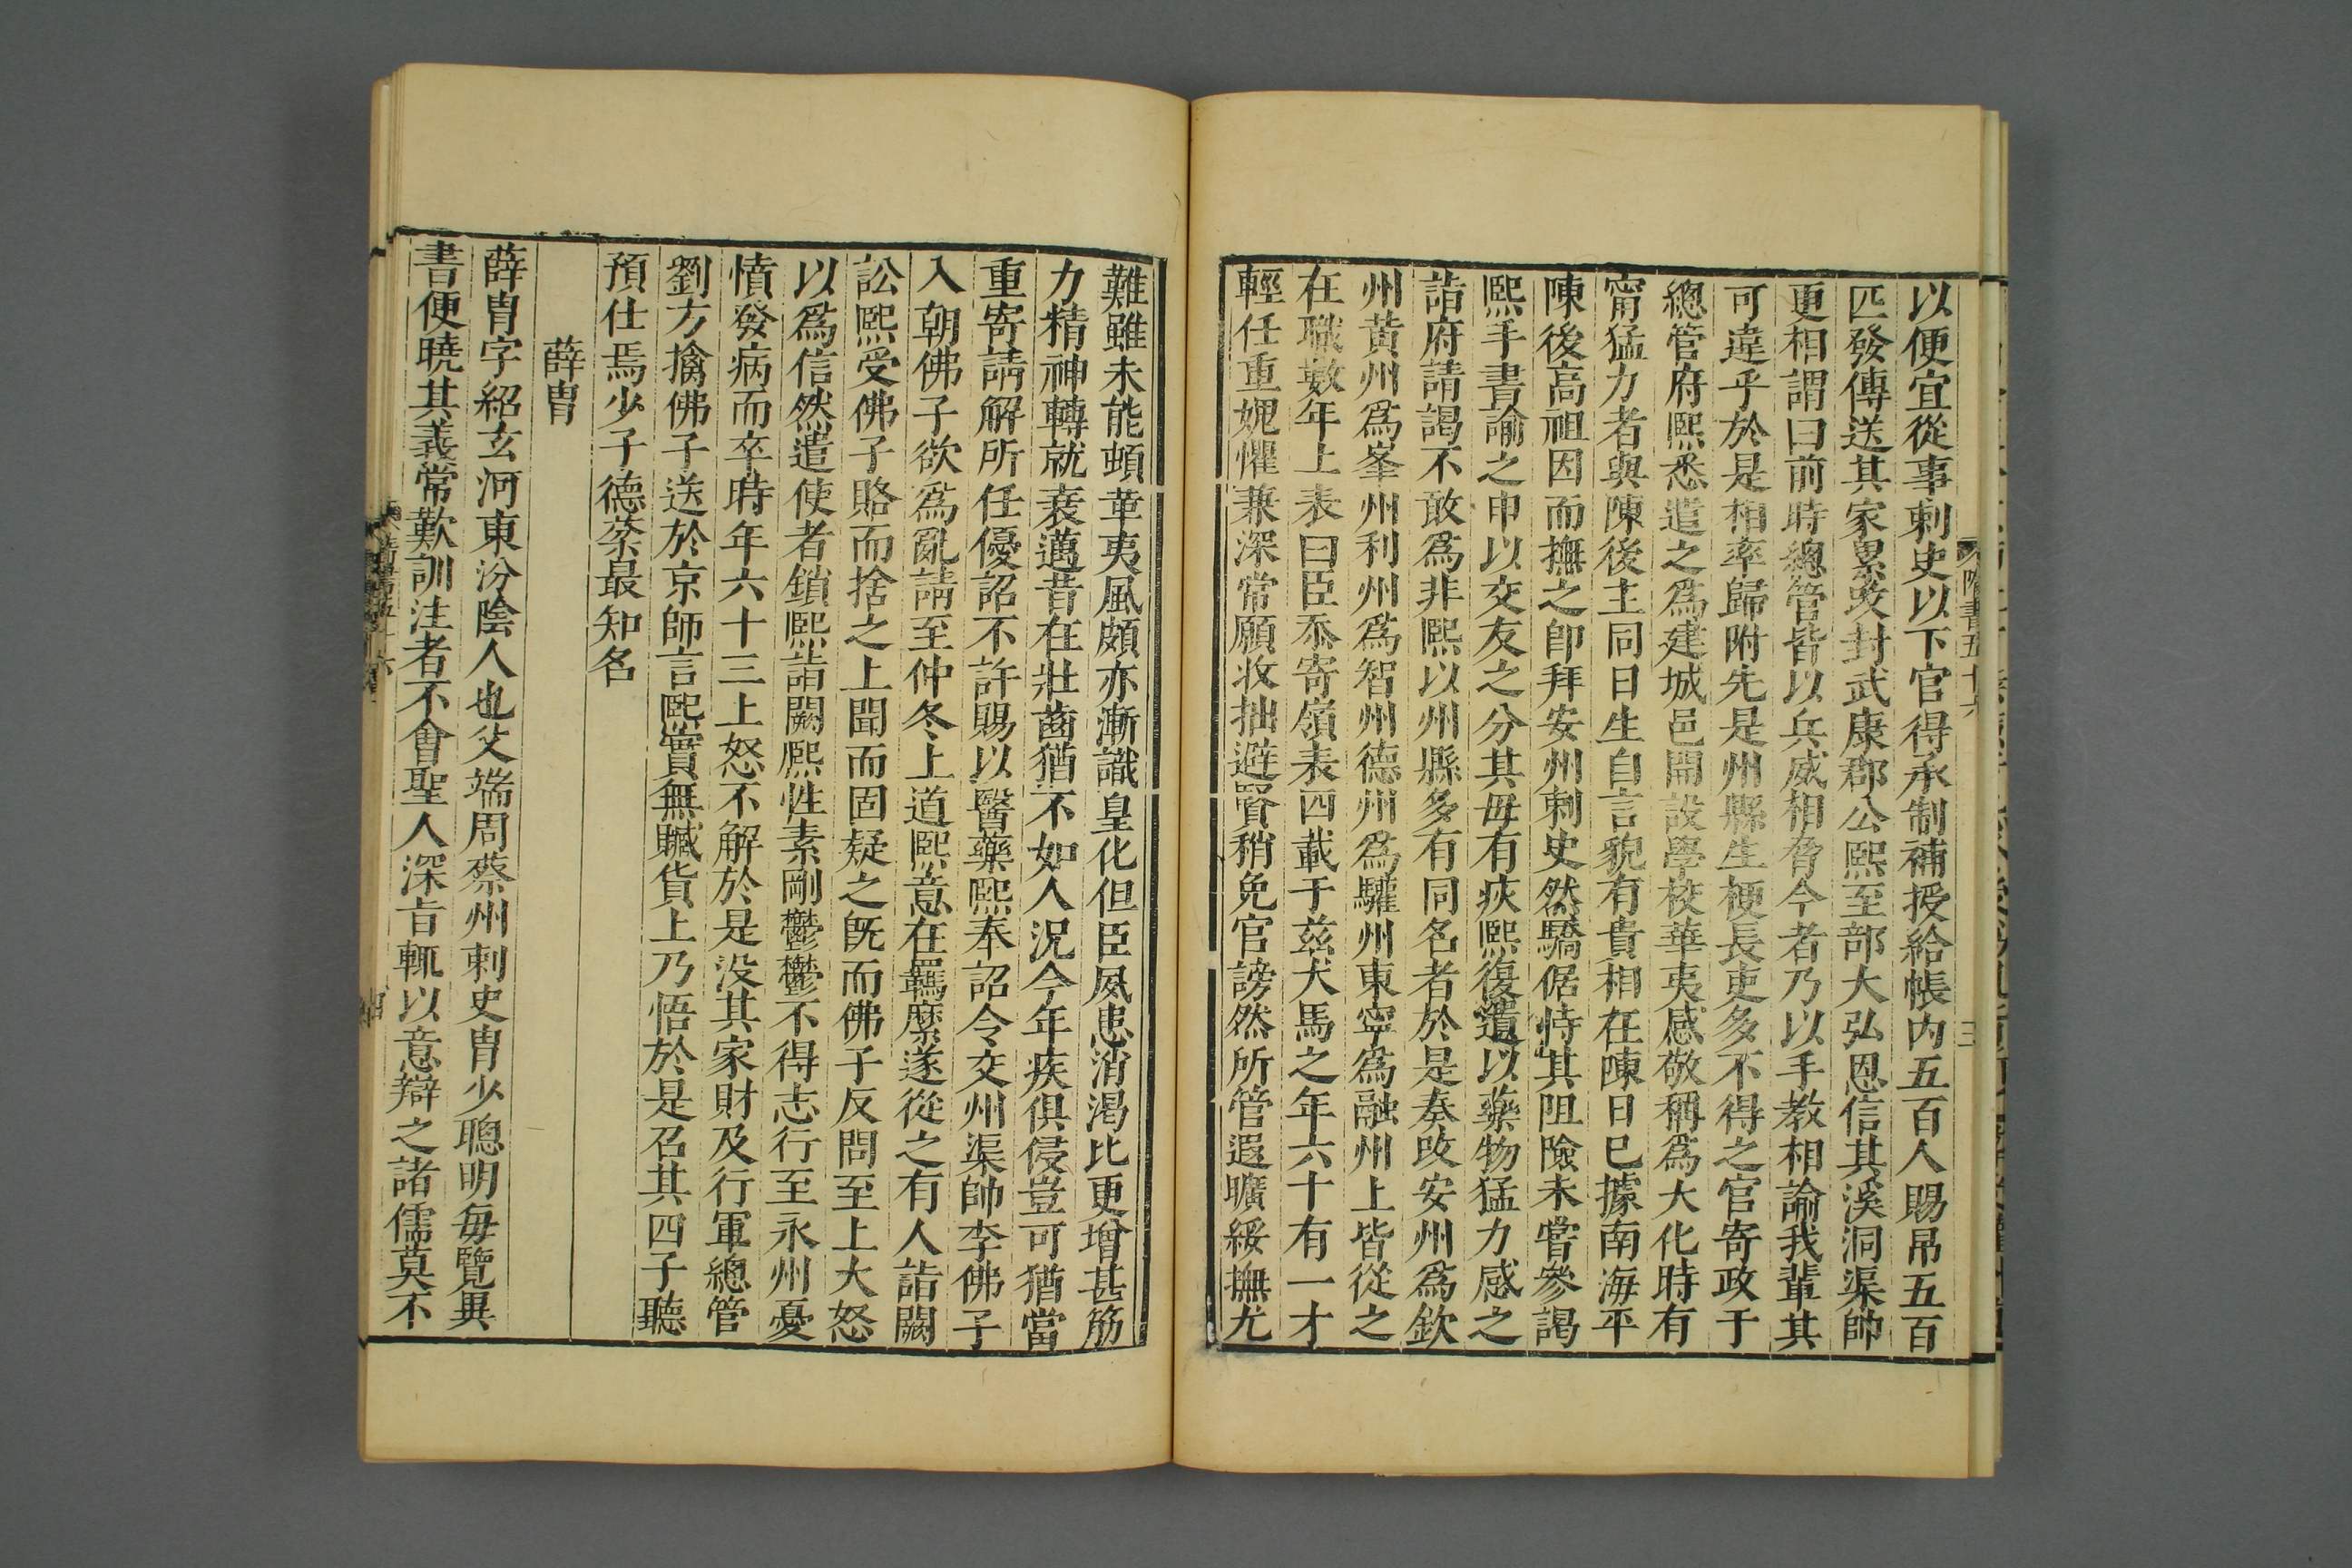 以便宜從事刺史以下官得承制補授給帳内五百人賜帛五百
匹發傳送其家累改封武康郡公熙至部大弘恩信其溪洞渠帥
更相謂曰前時總管皆以兵威相脅今者乃以手教相諭我輩其
可違乎於是相率歸附先是州縣生梗長吏多不得之官寄政于
總管府熙悉遣之爲建城邑開設學校華夷感敬稱爲大化時有
甯猛力者與陳後主同日生自言貌有貴相在陳日已據南海平
陳後高祖因而撫之即拜安州刺史然驕倨恃其阻險未嘗參謁
熙手書諭之申以交友之分其毋有疾熙復遺以藥物猛力感之
詣府請謁不敢爲非熙以州縣多有同名者於是奏改安州爲欽
州黄州爲峯州利州爲智州德州爲驩州東寧爲融州上皆從之
在職數年上表曰臣忝寄嶺表四載于兹犬馬之年六十有一才
輕任重媿懼兼深常願收拙避賢稍免官謗然所管遐曠綏撫尤
難雖未能頓革夷風頗亦漸識皇化但臣夙患消渴比更增甚筋
力精神轉就衰邁昔在壯齒猶不如人況今年疾俱侵豈可猶當
重寄請解所任優詔不許賜以醫藥熙奉詔令交州渠帥李佛子
入朝佛子欲爲亂請至仲冬上道熙意在羈縻遂從之有人詣闕
訟熙受佛子賂而捨之上聞而固疑之既而佛子反問至上大怒
以爲信然遣使者鎖熙詣闕熙性素剛鬱鬱不得志行至永州憂
憤發病而卒時年六十三上怒不解於是没其家財及行軍總管
劉方擒佛子送於京師言熙實無贓貨上乃悟於是召其四子聽
預仕焉少子德棻最知名
薛胄
薛胄字紹玄河東汾陰人也父端周蔡州刺史胄少聰明每覽異
書便曉其義常歎訓注者不會聖人深旨輒以意辯之諸儒莫不
隋書五十六
三